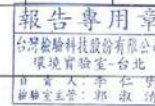 報告專用章
台灣檢驗科技股份有限公
環境實驗室-台北
負責人：李仁
檢驗室主管：郭淑清